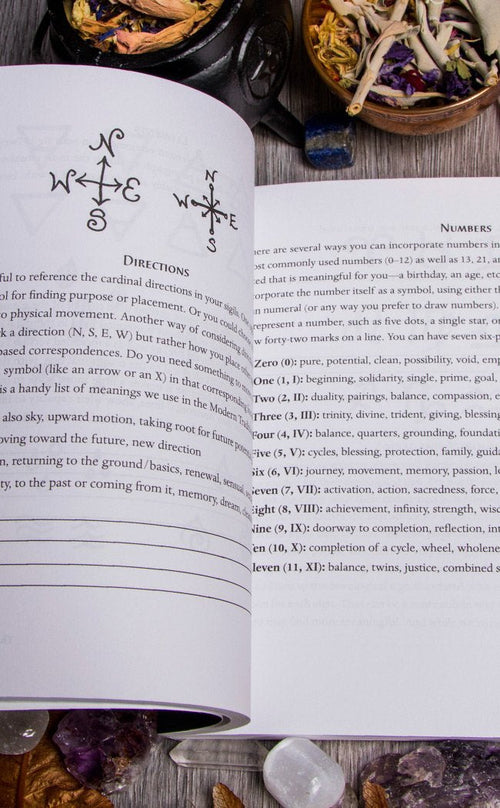 N
W E
S
N
W E
S
DIRECTIONS
ful to reference the cardinal directions in your sigils.
ol for finding purpose or placement. Or you could
o physical movement. Another way of considering
k a direction (N, S, E, W) but rather how you place
based correspondences. Do you need something to
symbol (like an arrow or an X) in that corresponding
is a handy list of meanings we use in the Modern
also sky, upward motion, taking root for future
oving toward the future, new direction
n, returning to the ground/basics, renewal, sensual,
ty, to the past or coming from it, memory, dream,
NUMBERS
here are several ways you can incorporate numbers in
ost commonly used numbers (0–12) as well as 13, 21, a
ted that is meaningful for you—a birthday, an age, etc
orporate the number itself as a symbol, using either th
n numeral (or any way you prefer to draw numbers).
represent a number, such as five dots, a single star, or
w forty-two marks on a line. You can have seven six-p
Zero (0): pure, potential, clean, possibility, void, emp
One (1, I): beginning, solidarity, single, prime, goal,
Two (2, II): duality, pairings, balance, compassion, e
Three (3, III): trinity, divine, trident, giving, blessing
Four (4, IV): balance, quarters, grounding, foundati
Five (5, V): cycles, blessing, protection, family, guida
Six (6, VI): journey, movement, memory, passion, l
Seven (7, VII): activation, action, sacredness, force,
Eight (8, VIII): achievement, infinity, strength, wisd
Nine (9, IX): doorway to completion, reflection, in
Ten (10, X): completion of a cycle, wheel, wholene
Eleven (11, XI): balance, twins, justice, combined s